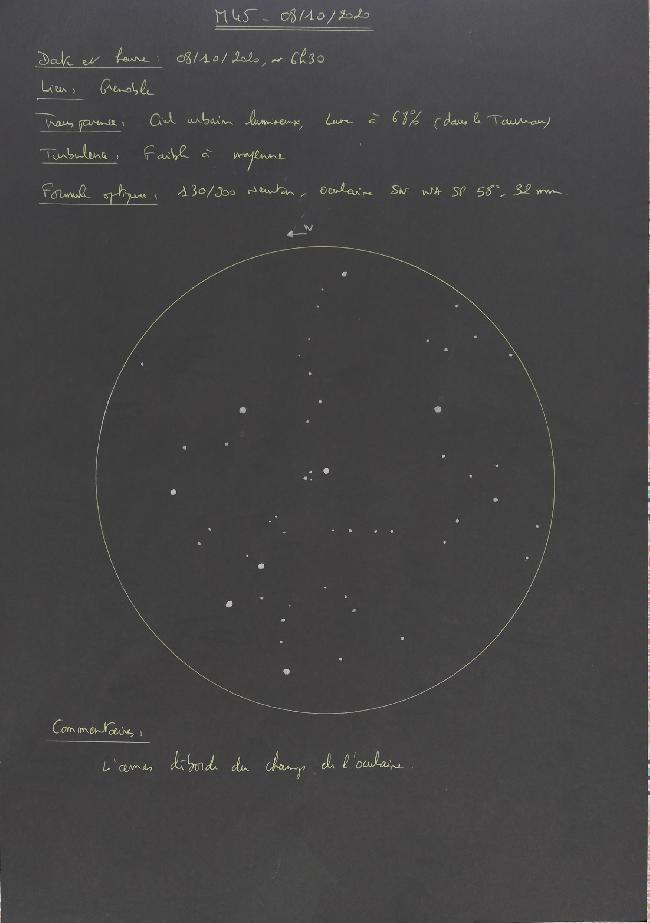 M45 - 08/10/2020
Date et heure : 08/10/2020, ~ 6h30
Lieu : Grenoble
Transparence : Ciel urbain lumineux, Lune à 68% (dans le Taureau)
Turbulence : Faible à moyenne
Formule optique : 130/900 Newton, oculaire SW WA SP 58°, 32 mm
Commentaires :
L'amas déborde du champ de l'oculaire.